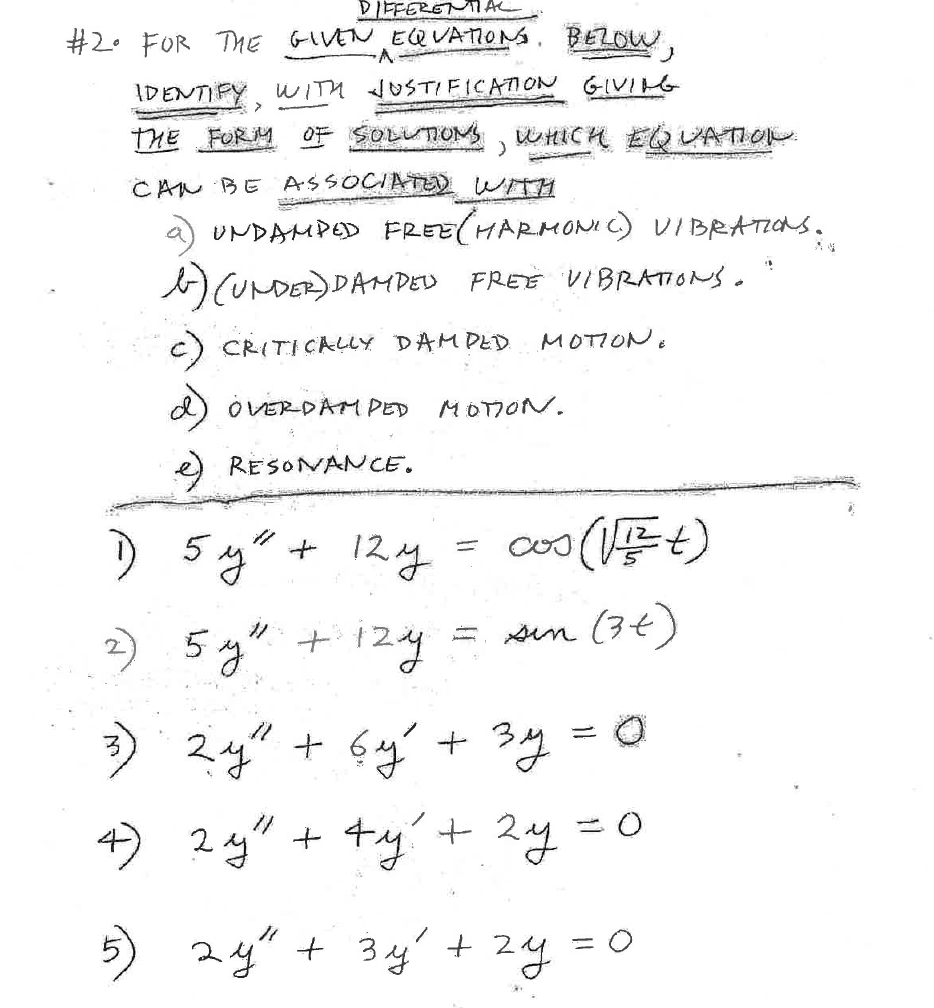 DIFFERENTIAL
#2. FOR THE GIVEN ^ EQUATIONS. BELOW,
IDENTIFY, WITH JUSTIFICATION GIVING
THE FORM OF SOLUTIONS, WHICH EQUATION
CAN BE ASSOCIATED WITH
a) UNDAMPED FREE (HARMONIC) VIBRATIONS.
b) (UNDER)DAMPED FREE VIBRATIONS.
c) CRITICALLY DAMPED MOTION.
d) OVERDAMPED MOTION.
e) RESONANCE.
1) 5y'' + 12y = cos(√(12/5) t)
2) 5y'' + 12y = sin (3t)
3) 2y'' + 6y' + 3y = 0
4) 2y'' + 4y' + 2y = 0
5) 2y'' + 3y' + 2y = 0